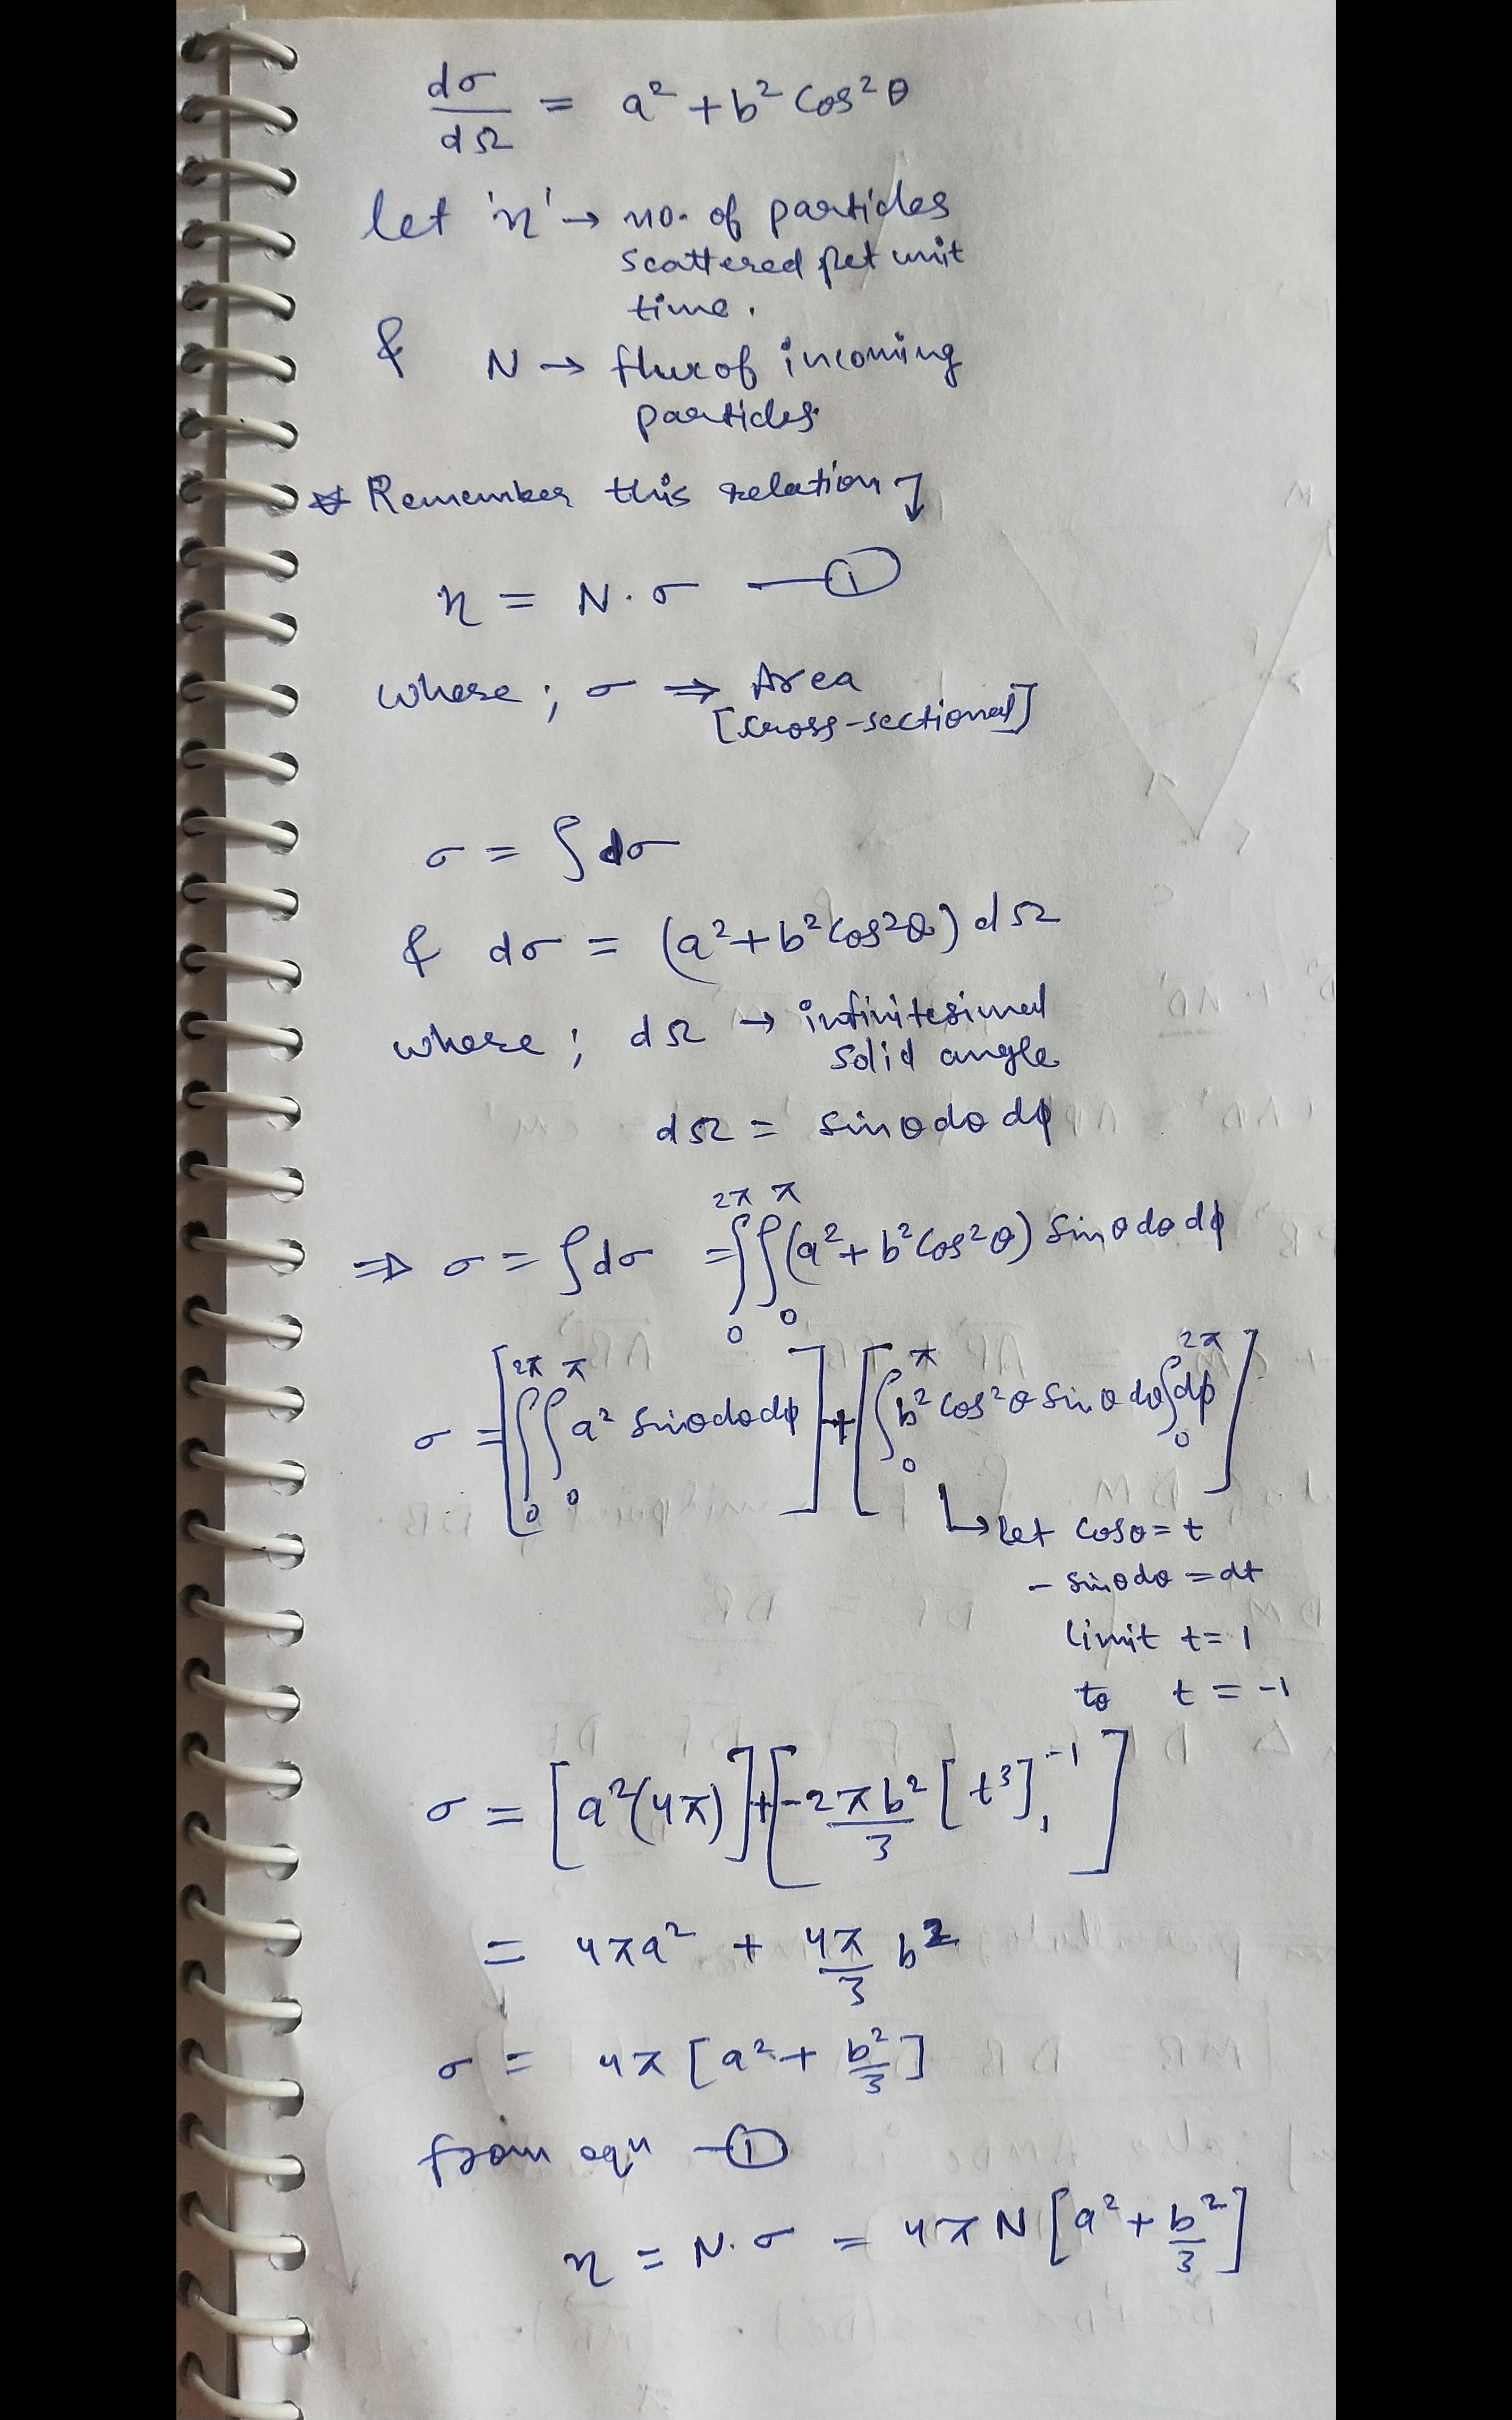 dσ/dΩ = a² + b² Cos²θ
let 'n' → no. of particles
scattered per unit
time.
& N → flux of incoming
particles.
* Remember this relation ↓
n = N·σ —①
where; σ ⇒ Area
[cross-sectional]
σ = ∫dσ
& dσ = (a²+b²Cos²θ) dΩ
where; dΩ → infinitesimal
solid angle
dΩ = sinθdθ dϕ
⇒ σ = ∫dσ = ∫₀^2π ∫₀^π (a² + b²Cos²θ) Sinθdθ dϕ
σ = [∫₀^2π ∫₀^π a² Sinθdθdϕ] + [∫₀^π b² Cos²θ Sinθdθ ∫₀^2π dϕ]
↳ let Cosθ = t
- sinθdθ = dt
limit t = 1
to t = -1
σ = [a²(4π)] + [-2πb²/3 [t³]₁^-1]
= 4πa² + 4π/3 b²
σ = 4π [a² + b²/3]
from eqn —①
n = N·σ = 4πN [a² + b²/3]